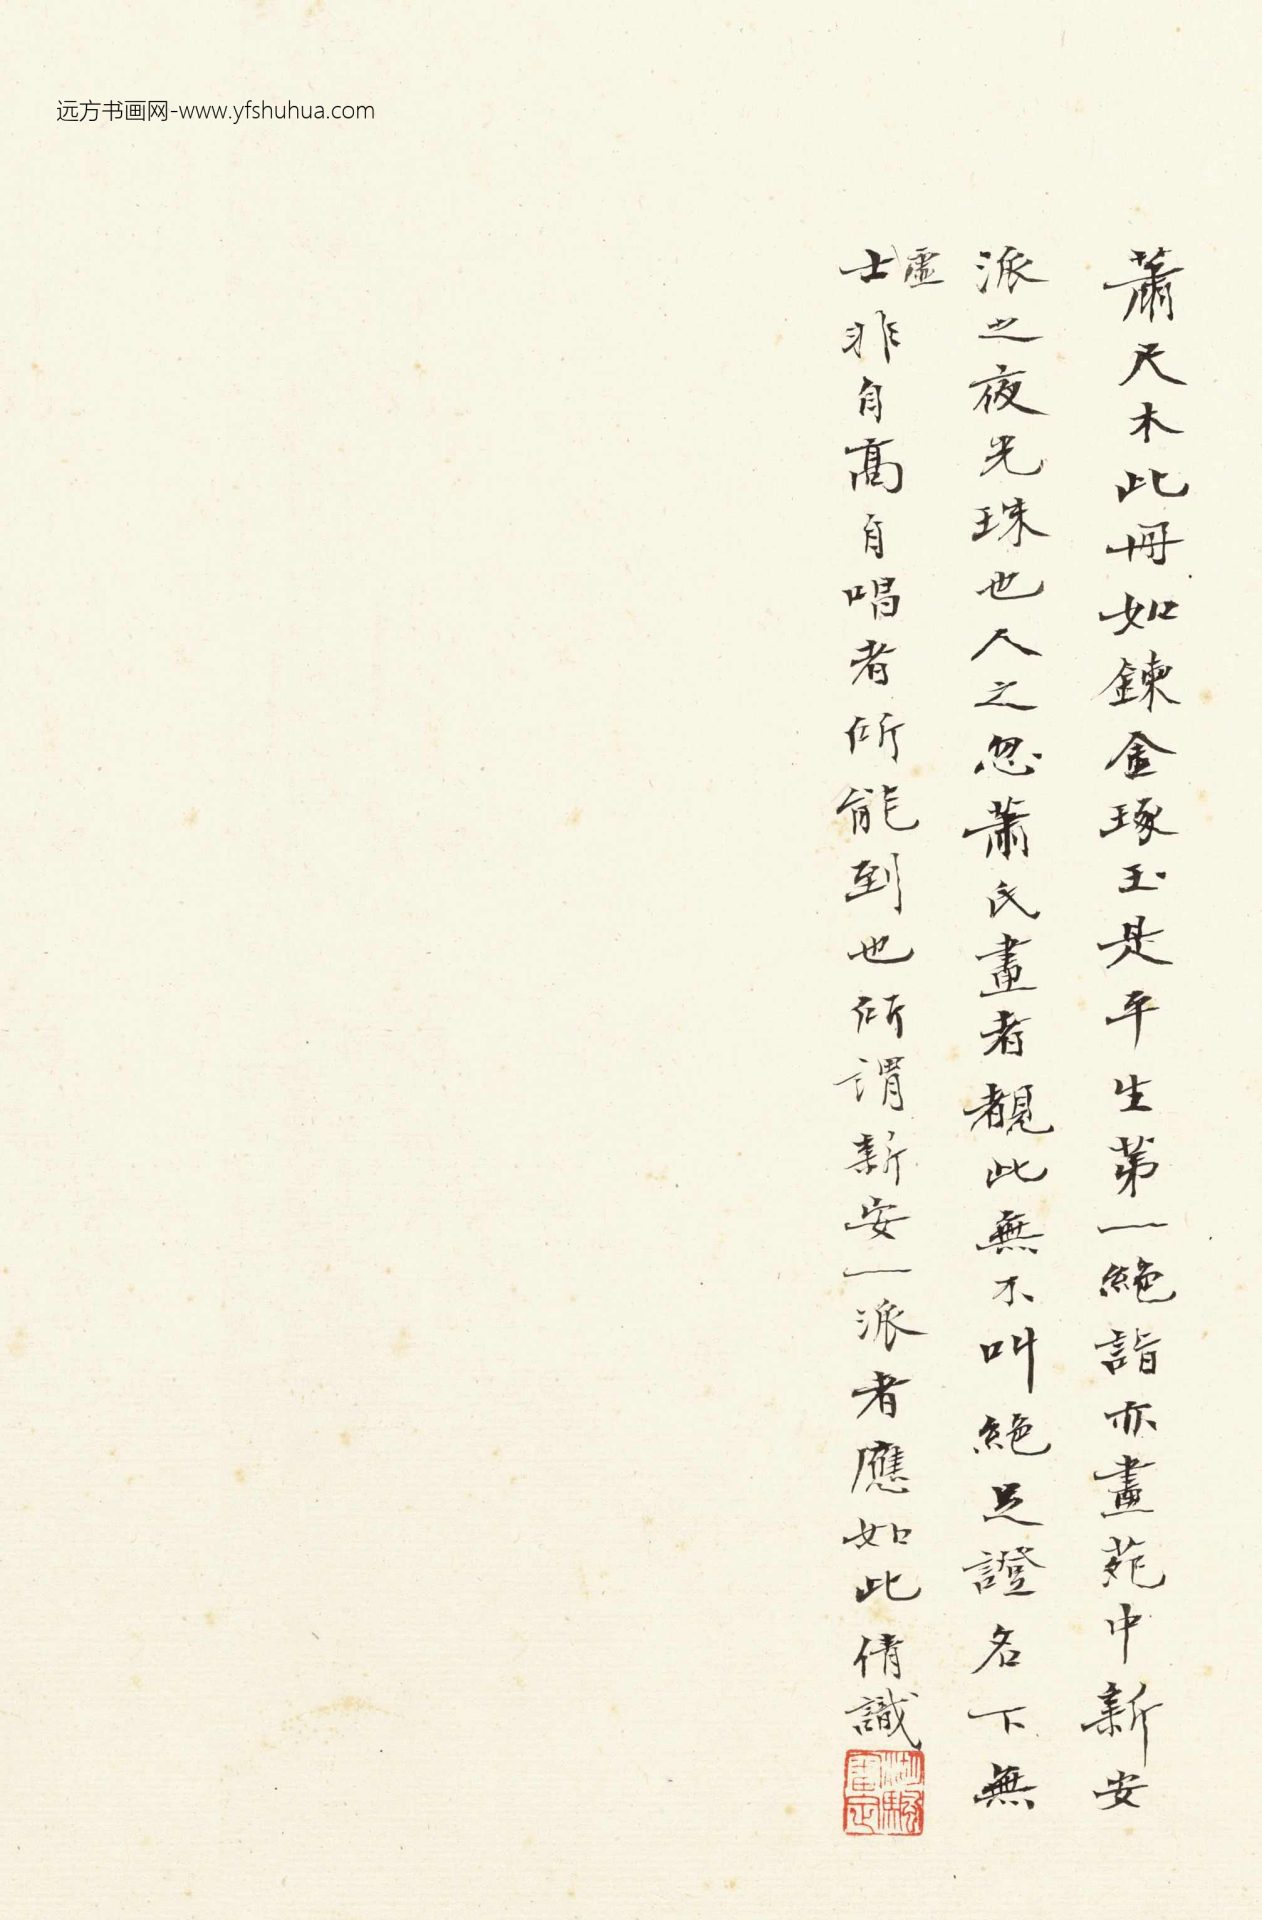 远方书画网-www.yfshuhua.com
蕭尺木此冊如鍊金琢玉是平生第一絕詣亦畫苑中新安
派之夜光珠也人之忽蕭氏畫者覩此無不叫絕足證名下無
虛
士非自高自唱者所能到也所謂新安一派者應如此倩識